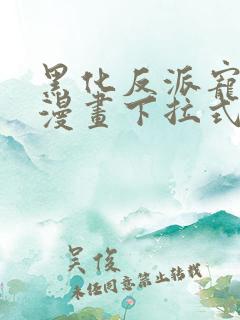 黑化反派寵
漫畫下拉式
吴俊
未经同意禁止转载